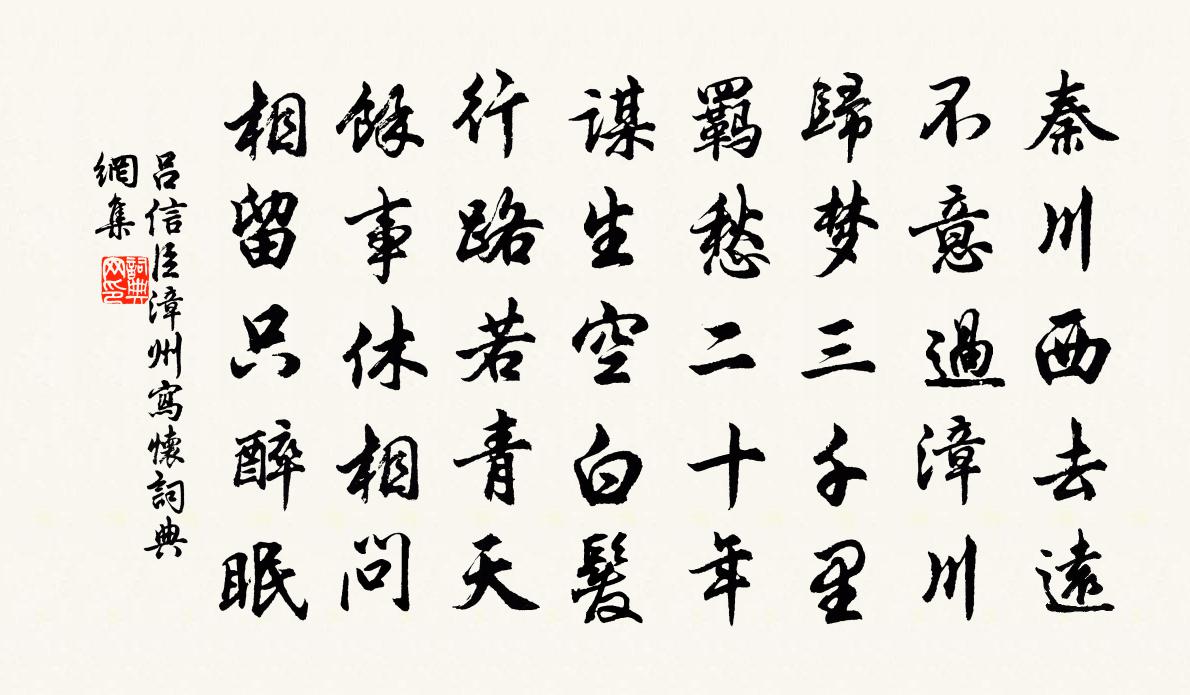 秦川西去遠
不意過漳川
歸梦三千里
羇愁二十年
謀生空白髮
行路若青天
餘事休相問
相留只醉眠
呂信臣漳州寫懷詞典
網集
詞典
网印